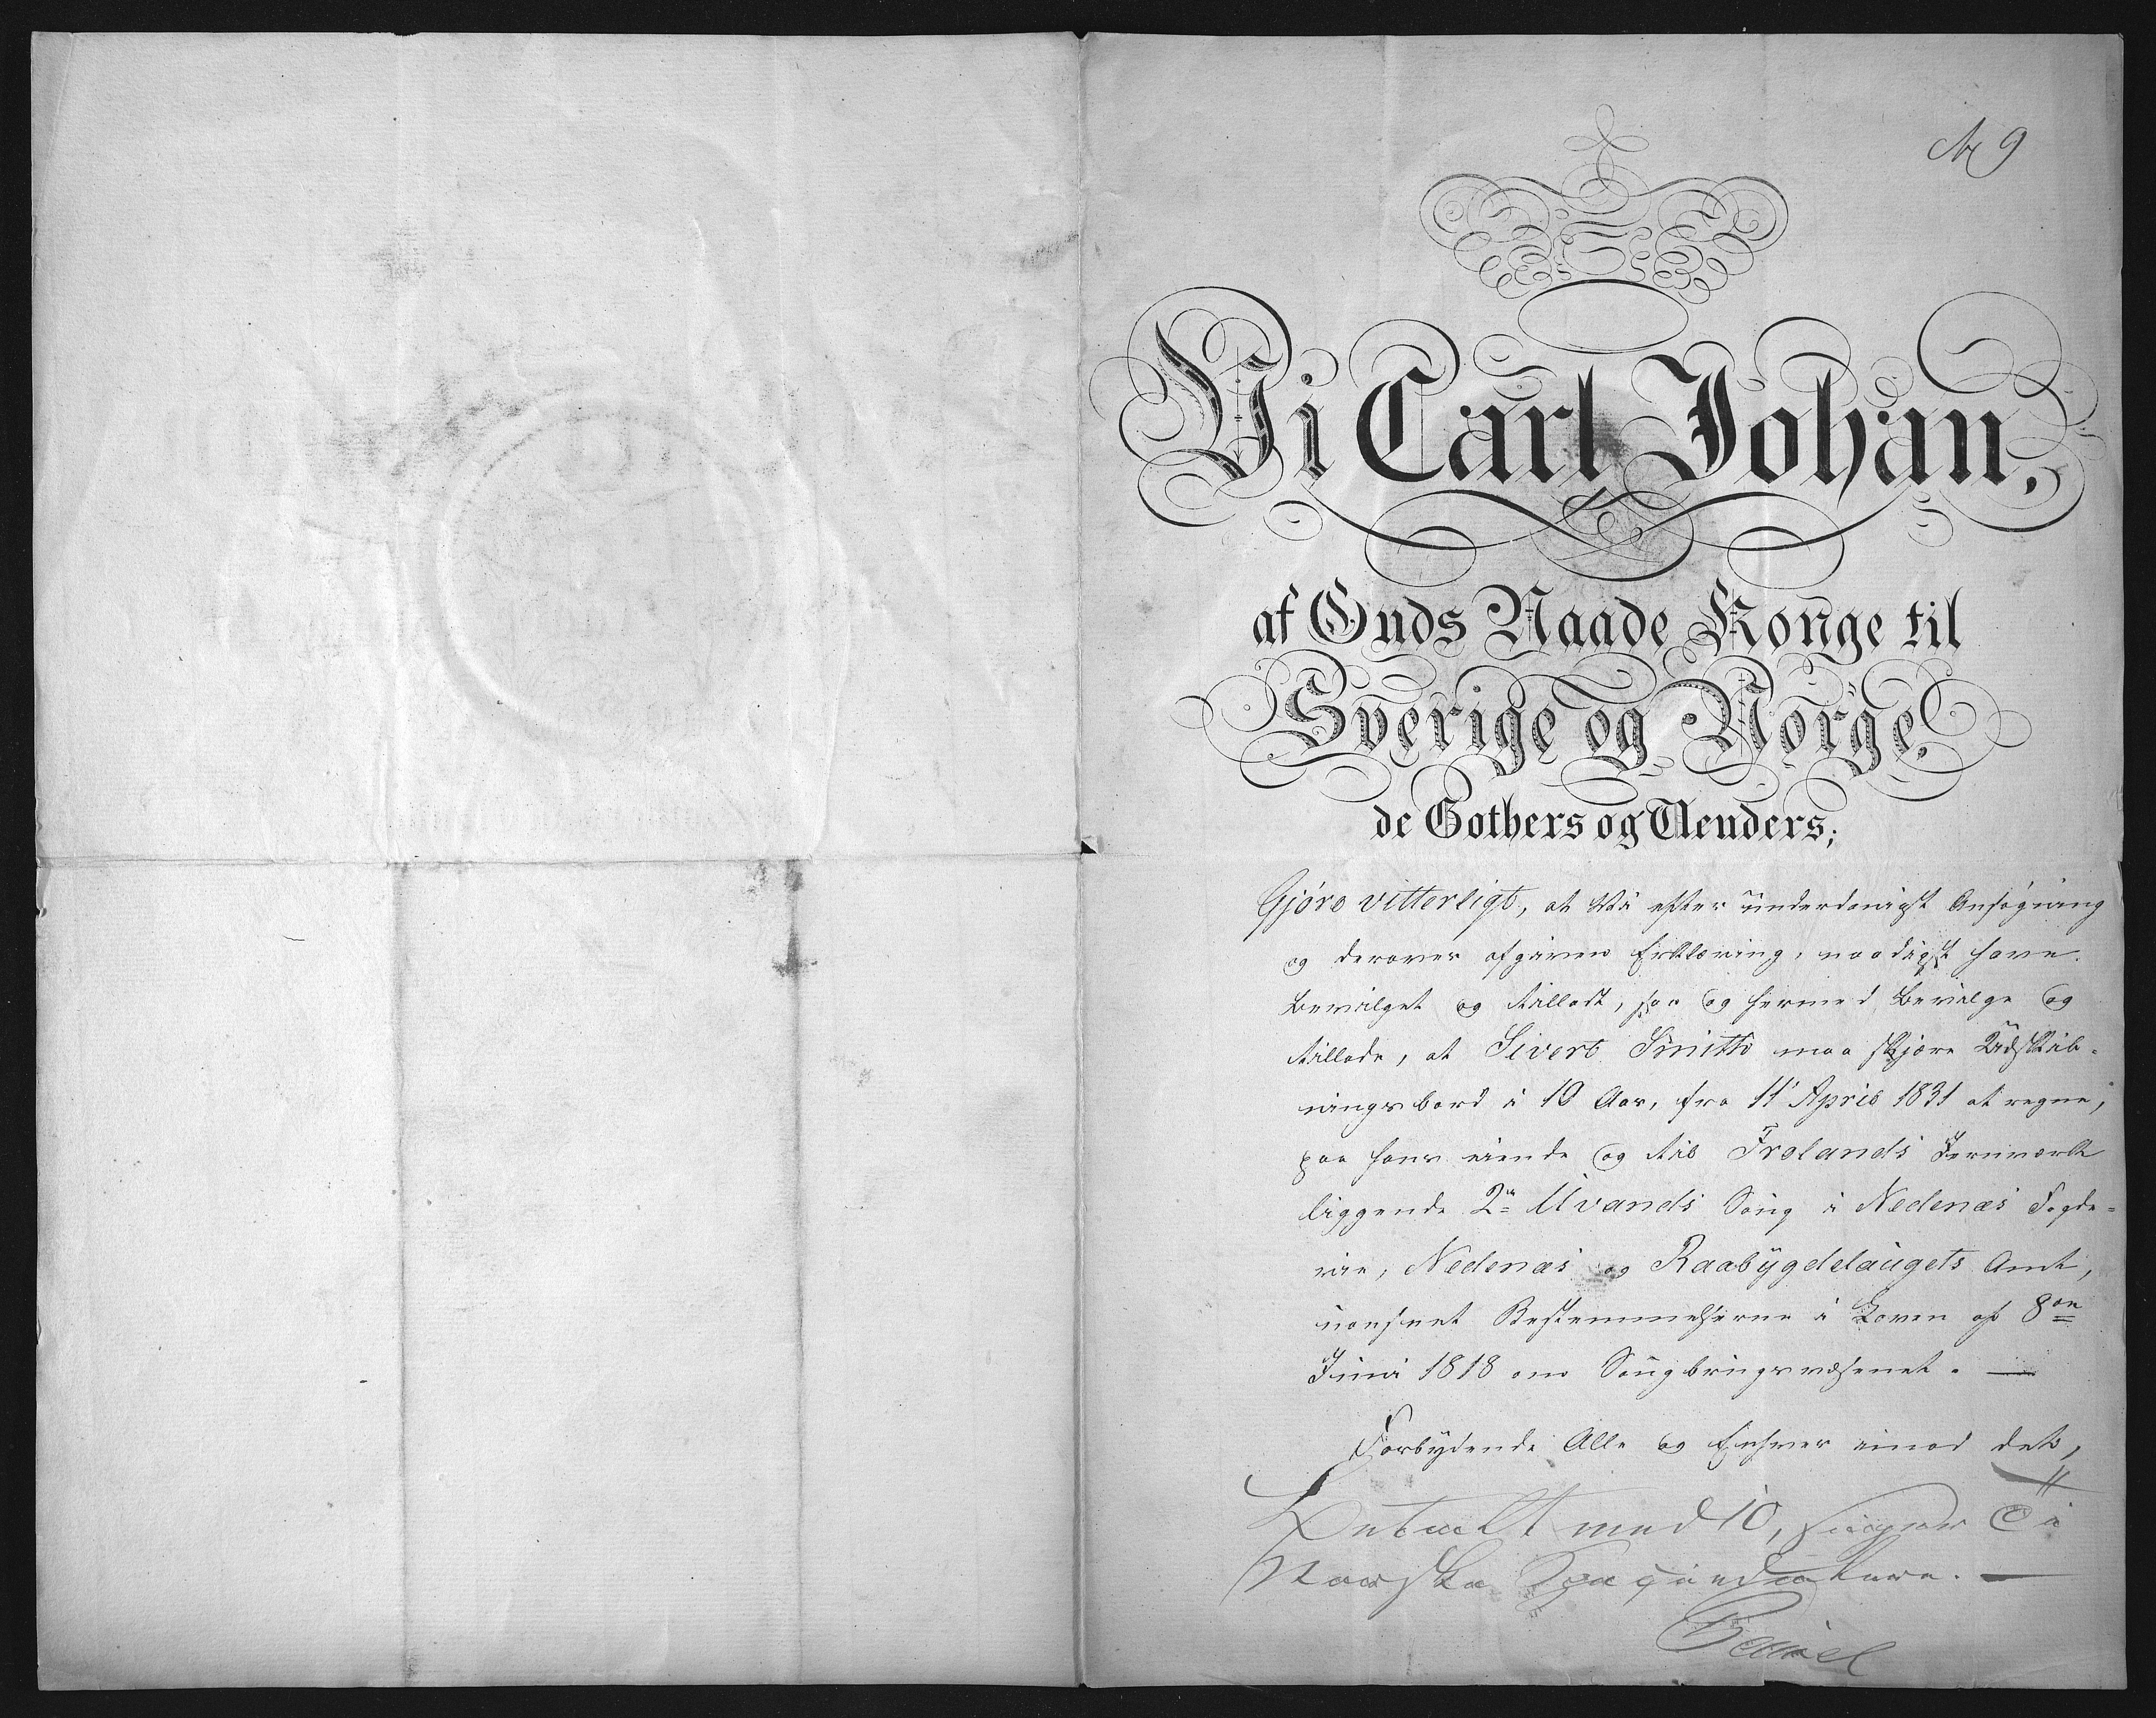 No 9
Vi Carl Johan,
af Guds Naade Konge til
Sverige og Norge,
de Gothers og Venders;
Gjöre vitterligt, at Vi efter underdanigst Ansøgning
og derover afgiven Erklæring, naadigst have
bevilget og tilladt, saa og hermed bevilge og
tillade, at Sivert Smith maa skjære Udskib-
ningsbord i 10 Aar, fra 11 April 1831 at regne,
paa hans eiende og til Frolands Jernværk
liggende 2de Uvands Saug i Nedenæs Fogde-
rie, Nedenæs og Raabÿgdelaugets Amt,
uanseet Bestemmelserne i Loven af 8de
Juni 1818 om Saugbrugsvæsenet. —
Forbÿdende Alle og Enhver imod det,
Betalt med 10, siger i
Norske